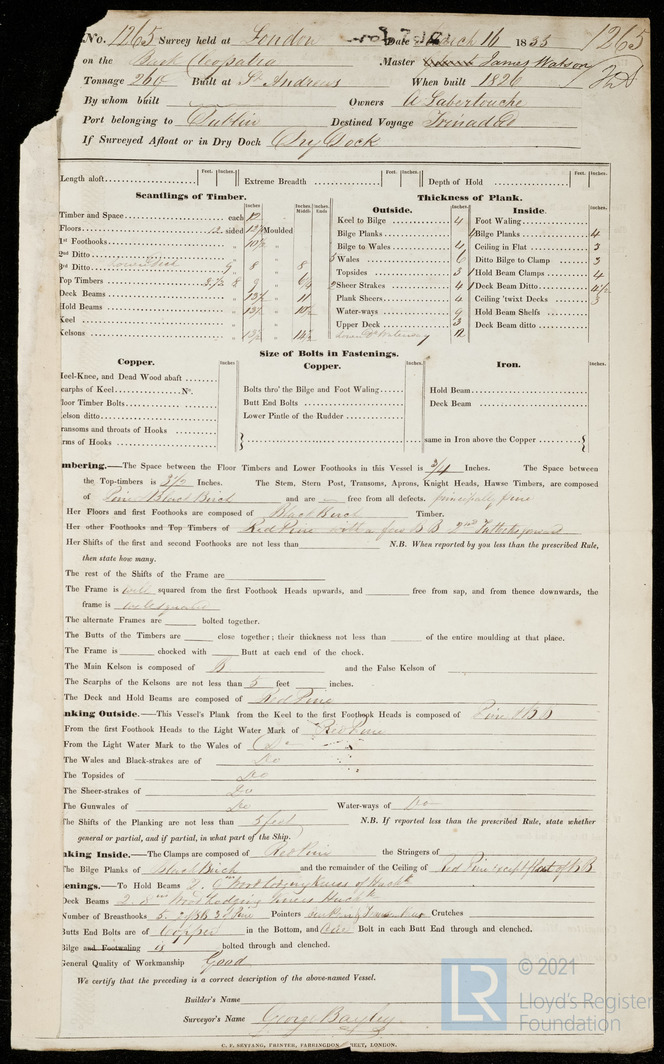 No. 1265 Survey held at London Date March 16 1835 1265
on the Cleopatra Master James Watson
Tonnage 260 Built at St Andrews When built 1826
By whom built Owners
Port belonging to Dublin Destined Voyage
If Surveyed Afloat or in Dry Dock Dry Dock
Length aloft Feet. Inches. Extreme Breadth Feet. Inches. Depth of Hold Feet. Inches.
Scantlings of Timber. Thickness of Plank.
Inches Inches Middle Inches Ends Outside. Inches Inside. Inches
Timber and Space each 12 Keel to Bilge 4 Foot Waling
Floors sided Moulded Bilge Planks Bilge Planks 4
1st Foothooks " " Bilge to Wales 4 Ceiling in Flat 3
2nd Ditto " " Wales 6 Ditto Bilge to Clamp 3
3rd Ditto 8 " 8 Topsides 3 Hold Beam Clamps 4
Top Timbers " Sheer Strakes 4 Deck Beam Ditto 4½
Deck Beams " " 11 Plank Sheers 4 Ceiling 'twixt Decks 3
Hold Beams " " Water-ways 9 Hold Beam Shelfs
Keel " " Upper Deck 3 Deck Beam ditto
Kelsons " " 12
Size of Bolts in Fastenings.
Copper. Inches Copper. Inches Iron. Inches
Heel-Knee, and Dead Wood abaft
Scarphs of Keel No. Bolts thro' the Bilge and Foot Waling Hold Beam
Floor Timber Bolts Butt End Bolts Deck Beam
Kelson ditto Lower Pintle of the Rudder
ransoms and throats of Hooks
rms of Hooks same in Iron above the Copper
mbering.—The Space between the Floor Timbers and Lower Foothooks in this Vessel is 3/4 Inches. The Space between
the Top-timbers is 3½ Inches. The Stem, Stern Post, Transoms, Aprons, Knight Heads, Hawse Timbers, are composed
of Pine Black Birch and are free from all defects. principally pine
Her Floors and first Foothooks are composed of Black Birch Timber.
Her other Foothooks and Top Timbers of Red Pine with a few BB 2nd
Her Shifts of the first and second Foothooks are not less than N.B. When reported by you less than the prescribed Rule,
then state how many.
The rest of the Shifts of the Frame are
The Frame is well squared from the first Foothook Heads upwards, and free from sap, and from thence downwards, the
frame is
The alternate Frames are bolted together.
The Butts of the Timbers are close together; their thickness not less than of the entire moulding at that place.
The Frame is chocked with Butt at each end of the chock.
The Main Kelson is composed of B and the False Kelson of
The Scarphs of the Kelsons are not less than 5 feet inches.
The Deck and Hold Beams are composed of Red Pine
nking Outside.—This Vessel's Plank from the Keel to the first Foothook Heads is composed of Pine & BB
From the first Foothook Heads to the Light Water Mark of Red Pine
From the Light Water Mark to the Wales of Do
The Wales and Black-strakes are of Do
The Topsides of Do
The Sheer-strakes of Do
The Gunwales of Do Water-ways of Do
The Shifts of the Planking are not less than 5 feet N.B. If reported less than the prescribed Rule, state whether
general or partial, and if partial, in what part of the Ship.
nking Inside.—The Clamps are composed of Red Pine the Stringers of
The Bilge Planks of Black Birch and the remainder of the Ceiling of Red Pine except flat of BB
enings.—To Hold Beams Wood Lodging Knees of Hack
Deck Beams Wood Lodging Knees Hack
Number of Breasthooks 5 Pointers Crutches
Butts End Bolts are of Copper in the Bottom, and One Bolt in each Butt End through and clenched.
Bilge and Footwaling is bolted through and clenched.
General Quality of Workmanship Good
We certify that the preceding is a correct description of the above-named Vessel.
Builder's Name
Surveyor's Name George Bayley
C. F. SEYFANG, PRINTER, FARRINGDON STREET, LONDON.
LR © 2021
Lloyd's Register
Foundation